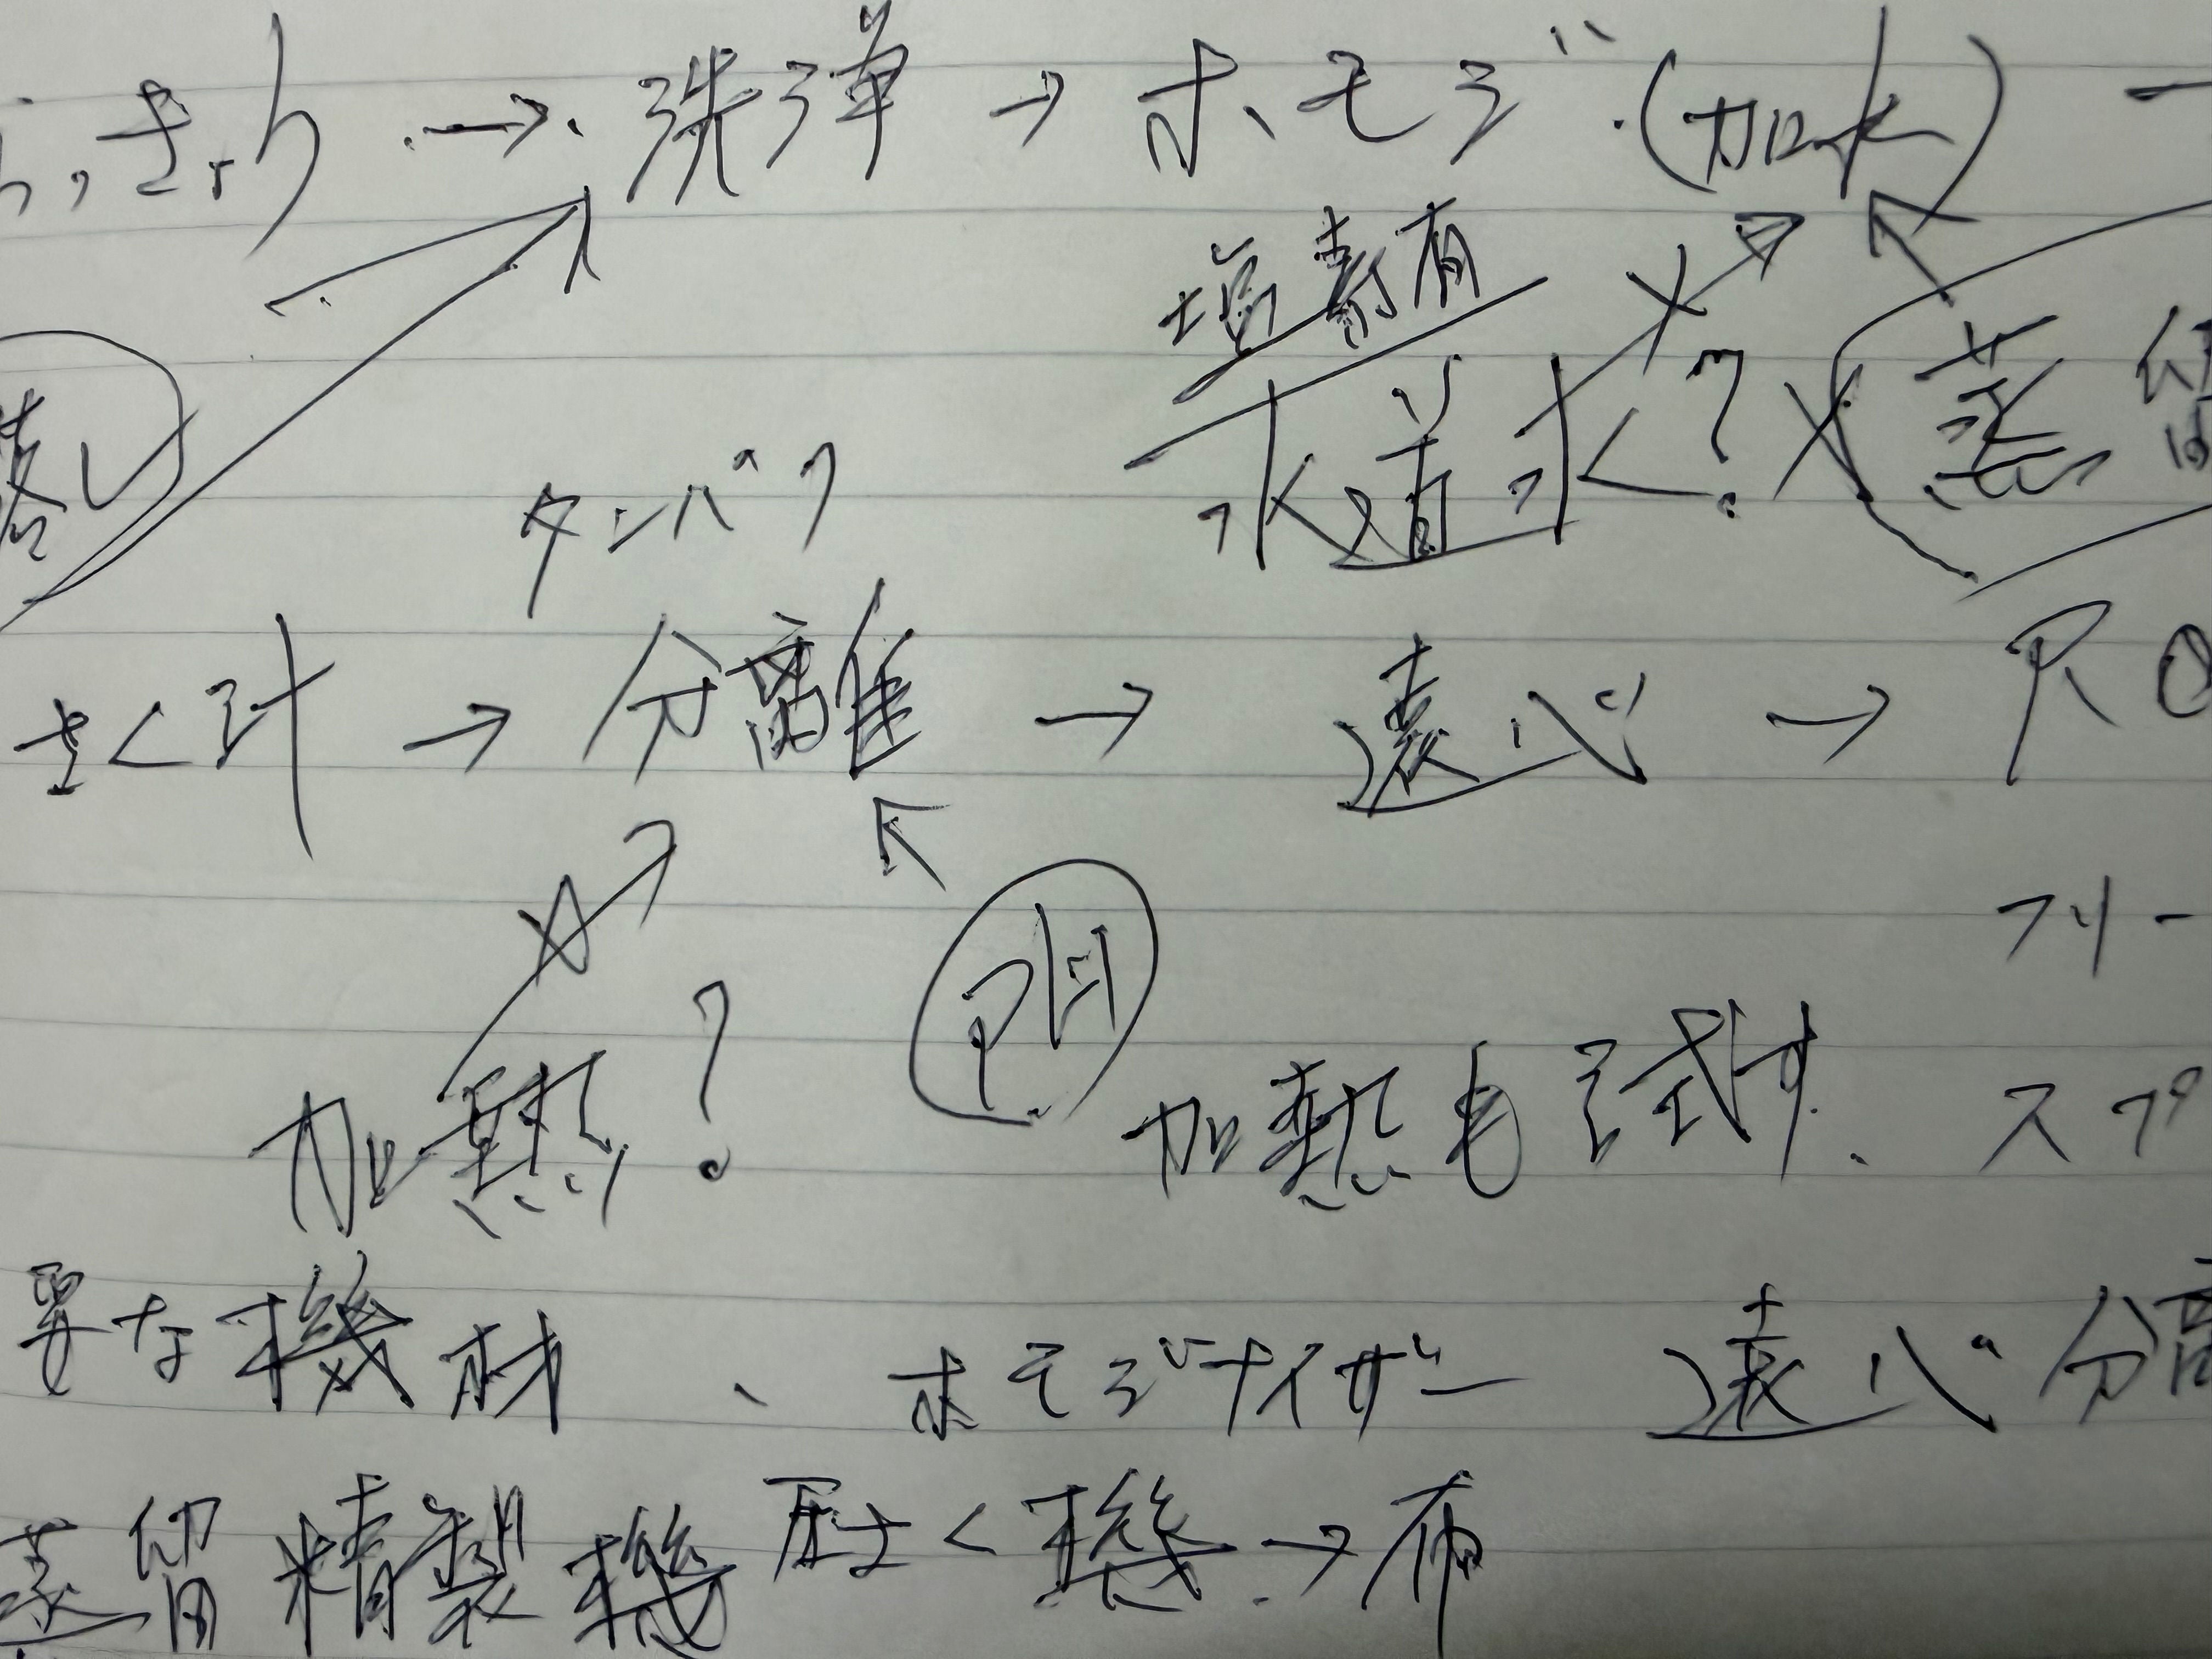 → 洗浄 → ホモジ (加水)
塩素有
水道水? 蒸留
落し
タンパク
さく汁 → 分離 → 遠心 → RO
PH
フリー
加熱? 加熱も試す. スプ
要な機材、ホモジナイザー 遠心分離
蒸留精製機 圧さく機 → 布